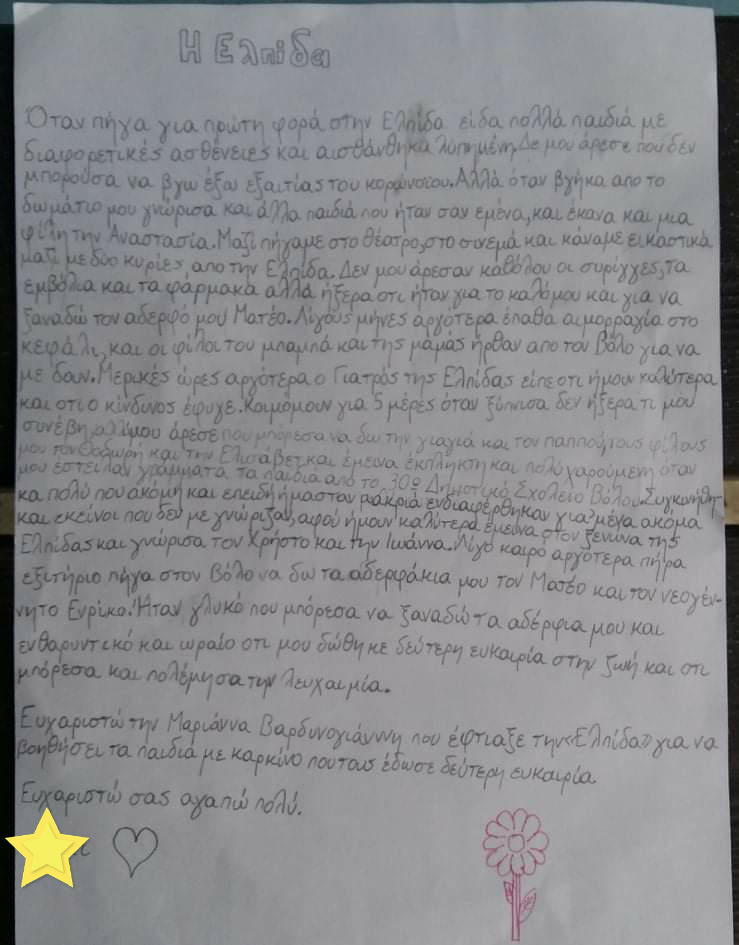 Η Ελπίδα
Όταν πήγα για πρώτη φορά στην Ελπίδα είδα πολλά παιδιά με
διαφορετικές ασθένειες και αισθάνθηκα λυπημένη. Δε μου άρεσε που δεν
μπορούσα να βγω έξω εξαιτίας του κορωνοϊού. Αλλά όταν βγήκα απο το
δωμάτιο μου γνώρισα και άλλα παιδιά που ήταν σαν εμένα, και έκανα και μια
φίλη την Αναστασία. Μαζί πήγαμε στο θέατρο, στο σινεμά και κάναμε εικαστικά
μαζί με δύο κυρίες, απο την Ελπίδα. Δεν μου άρεσαν καθόλου οι συρίγγες, τα
εμβόλια και τα φάρμακα αλλά ήξερα οτι ήταν για το καλό μου και για να
ξαναδώ τον αδερφό μου Ματέο. Λίγους μήνες αργότερα έπαθα αιμορραγία στο
κεφάλι, και οι φίλοι του μπαμπά και της μαμάς ήρθαν απο τον Βόλο για να
με δουν. Μερικές ώρες αργότερα ο Γιατρός της Ελπίδας είπε οτι ήμουν καλύτερα
και οτι ο κίνδυνος έφυγε. Κοιμόμουν για 5 μέρες όταν ξύπνισα δεν ήξερα τι μου
συνέβη, αλλ μου άρεσε που μπόρεσα να δω την γιαγιά και τον παππού, τους φίλους
μου τον Θοδωρή και την Ελισάβετ, και έμεινα έκπληκτη και πολύ χαρούμενη όταν
μου έστειλαν γράμματα τα παιδιά απο το 30º Δημοτικό Σχολείο Βόλου. Συγκινήθη-
κα πολύ που ακόμη και επειδή ήμασταν μακριά ενδιαφέρθηκαν για μένα ακόμα
και εκείνοι που δεν με γνώριζαν, αφού ήμουν καλύτερα έμεινα στον ξενώνα της
Ελπίδας και γνώρισα τον Χρήστο και την Ιωάννα. Λίγο καιρό αργότερα πήρα
εξιτήριο πήγα στον Βόλο να δω τα αδερφάκια μου τον Ματέο και τον νεογέν-
νητο Ενρίκο. Ήταν γλυκό που μπόρεσα να ξαναδώ τα αδέρφια μου και
ενθαρυντικό και ωραίο οτι μου δώθηκε δεύτερη ευκαιρία στην ζωή και οτι
μπόρεσα και πολέμησα την λευχαιμία.
Ευχαριστώ την Μαριάννα Βαρδυνογιάννη που έφτιαξε την «Ελπίδα» για να
βοηθήσει τα παιδιά με καρκίνο που τους έδωσε δεύτερη ευκαιρία
Ευχαριστώ σας αγαπώ πολύ.